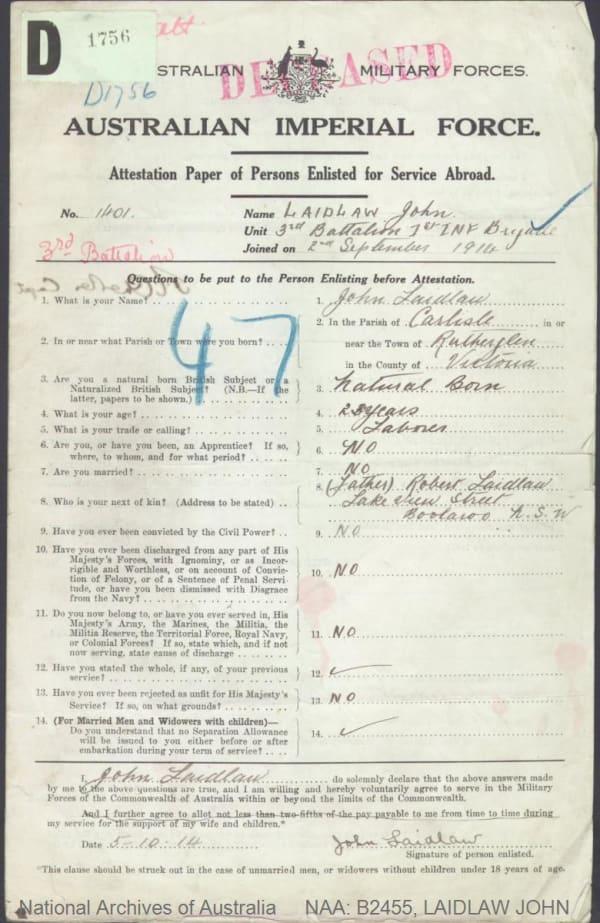 D
1756
D1756
DECEASED
AUSTRALIAN MILITARY FORCES.
AUSTRALIAN IMPERIAL FORCE.
Attestation Paper of Persons Enlisted for Service Abroad.
No. 1401.
Name LAIDLAW John.
Unit 3rd Battalion 1st INF Brigade
Joined on 2nd September 1914
3rd Battalion
Questions to be put to the Person Enlisting before Attestation.
47
1. What is your Name?
1. John Laidlaw
2. In or near what Parish or Town were you born?
2. In the Parish of Carlisle in or
near the Town of Rutherglen
in the County of Victoria
3. Are you a natural born British Subject or a
Naturalized British Subject? (N.B.—If the
latter, papers to be shown.)
3. Natural Born
4. What is your age?
4. years
5. What is your trade or calling?
5. Laborer
6. Are you, or have you been, an Apprentice? If so,
where, to whom, and for what period?
6. NO
7. Are you married?
7. NO
8. Who is your next of kin? (Address to be stated)
8. (Father) Robert Laidlaw
Lake View Street
Boolaroo N.S.W
9. Have you ever been convicted by the Civil Power?
9. NO
10. Have you ever been discharged from any part of His
Majesty's Forces, with Ignominy, or as Incor-
rigible and Worthless, or on account of Convic-
tion of Felony, or of a Sentence of Penal Servi-
tude, or have you been dismissed with Disgrace
from the Navy?
10. NO
11. Do you now belong to, or have you ever served in, His
Majesty's Army, the Marines, the Militia, the
Militia Reserve, the Territorial Force, Royal Navy,
or Colonial Forces? If so, state which, and if not
now serving, state cause of discharge
11. NO
12. Have you stated the whole, if any, of your previous
service?
12. ✓
13. Have you ever been rejected as unfit for His Majesty's
Service? If so, on what grounds?
13. NO
14. (For Married Men and Widowers with children)—
Do you understand that no Separation Allowance
will be issued to you either before or after
embarkation during your term of service?
14. ✓
I, John Laidlaw do solemnly declare that the above answers made
by me to the above questions are true, and I am willing and hereby voluntarily agree to serve in the Military
Forces of the Commonwealth of Australia within or beyond the limits of the Commonwealth.
And I further agree to allot not less than two-fifths of the pay payable to me from time to time during
my service for the support of my wife and children.*
Date 5-10-14
John Laidlaw
Signature of person enlisted.
*This clause should be struck out in the case of unmarried men, or widowers without children under 18 years of age.
National Archives of Australia NAA: B2455, LAIDLAW JOHN